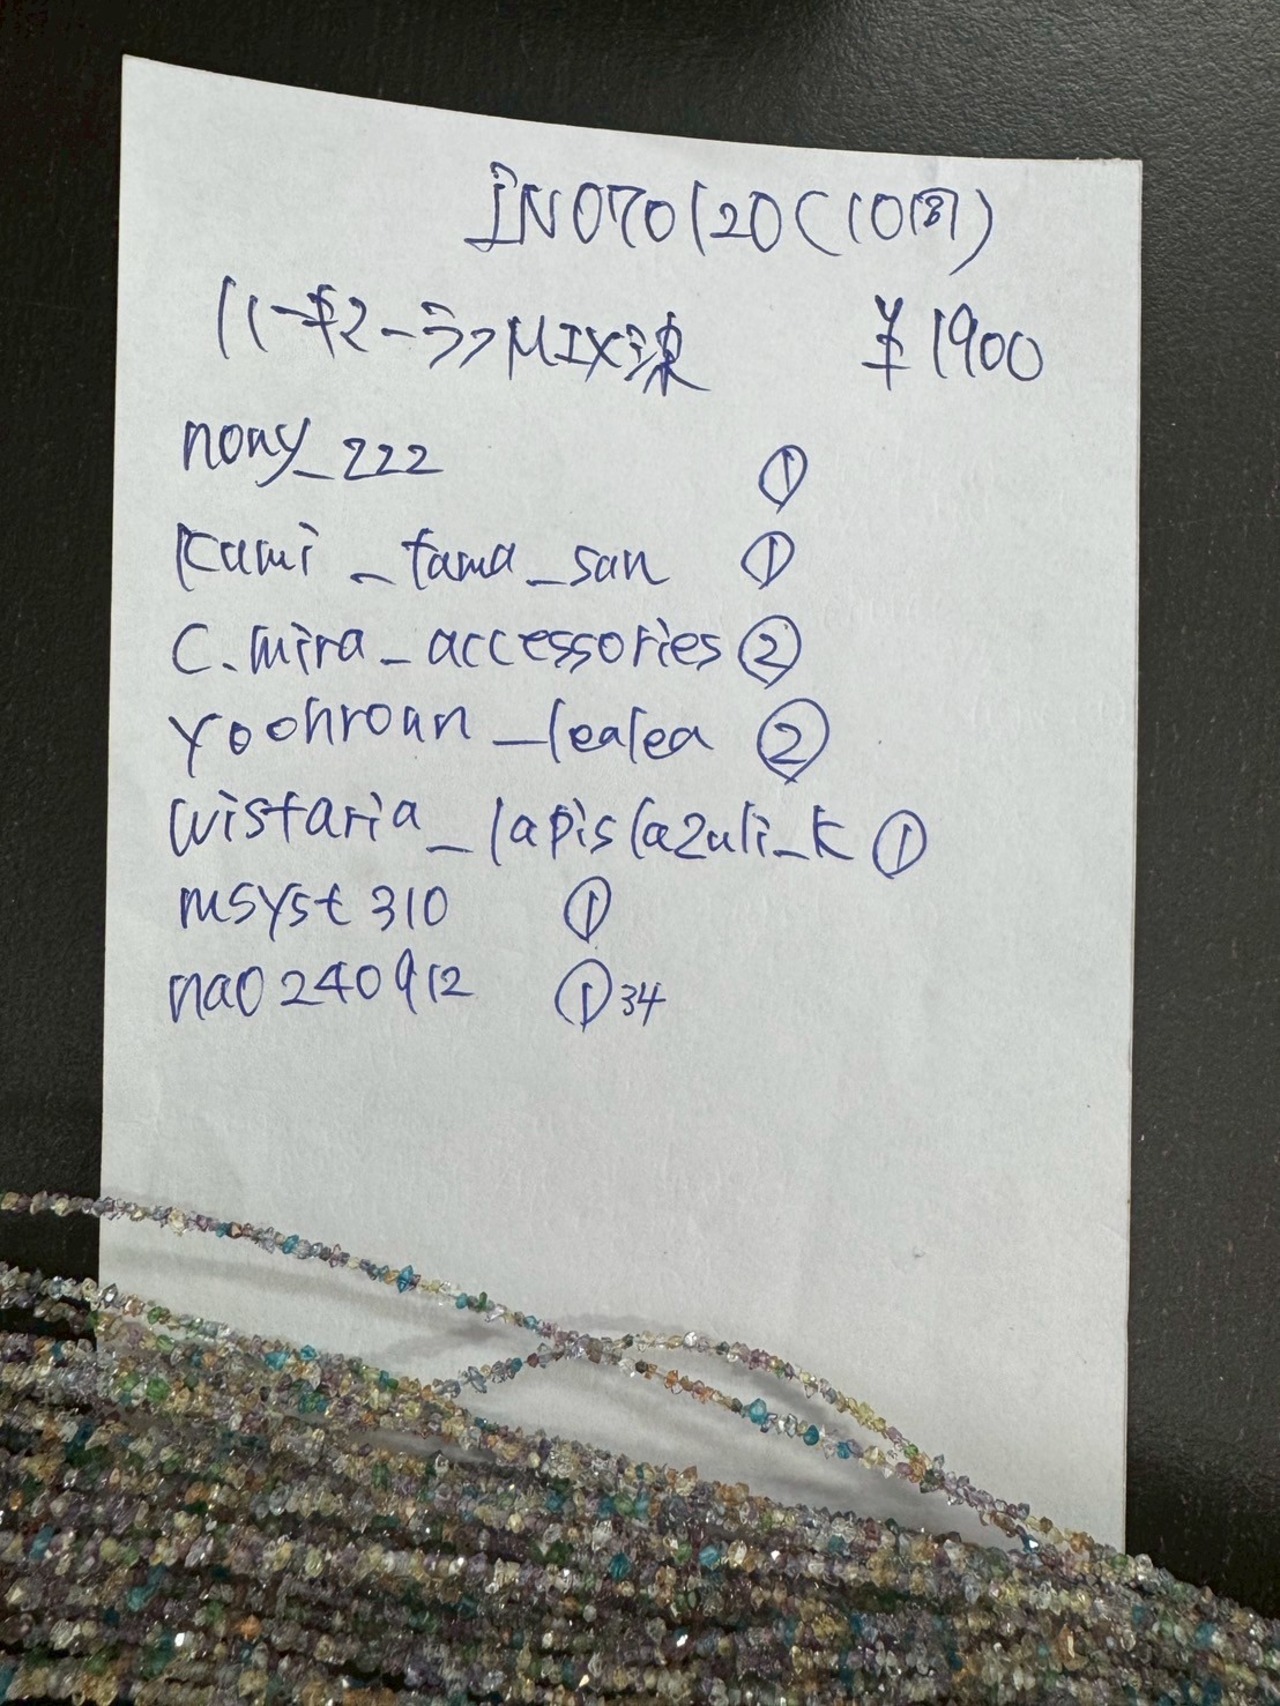 iN070120(10月)
ハーキマーカラーMIX 涞 ¥1900
nony_222 ①
Kami_tama_san ①
C.mira_accessories ②
yoohroun_lealea ②
wistaria_lapislazuli_k ①
msyst310 ①
nao240912 ① 34